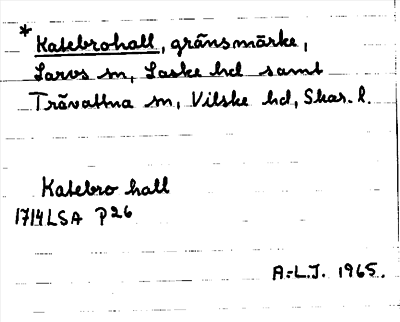 * Katebrohall, gränsmärke,
Larvs sn, Laske hd samt
Trävattna sn, Vilske hd, Skar. l.
Katebro hall
1714 LSA P26
A-L.J. 1965.